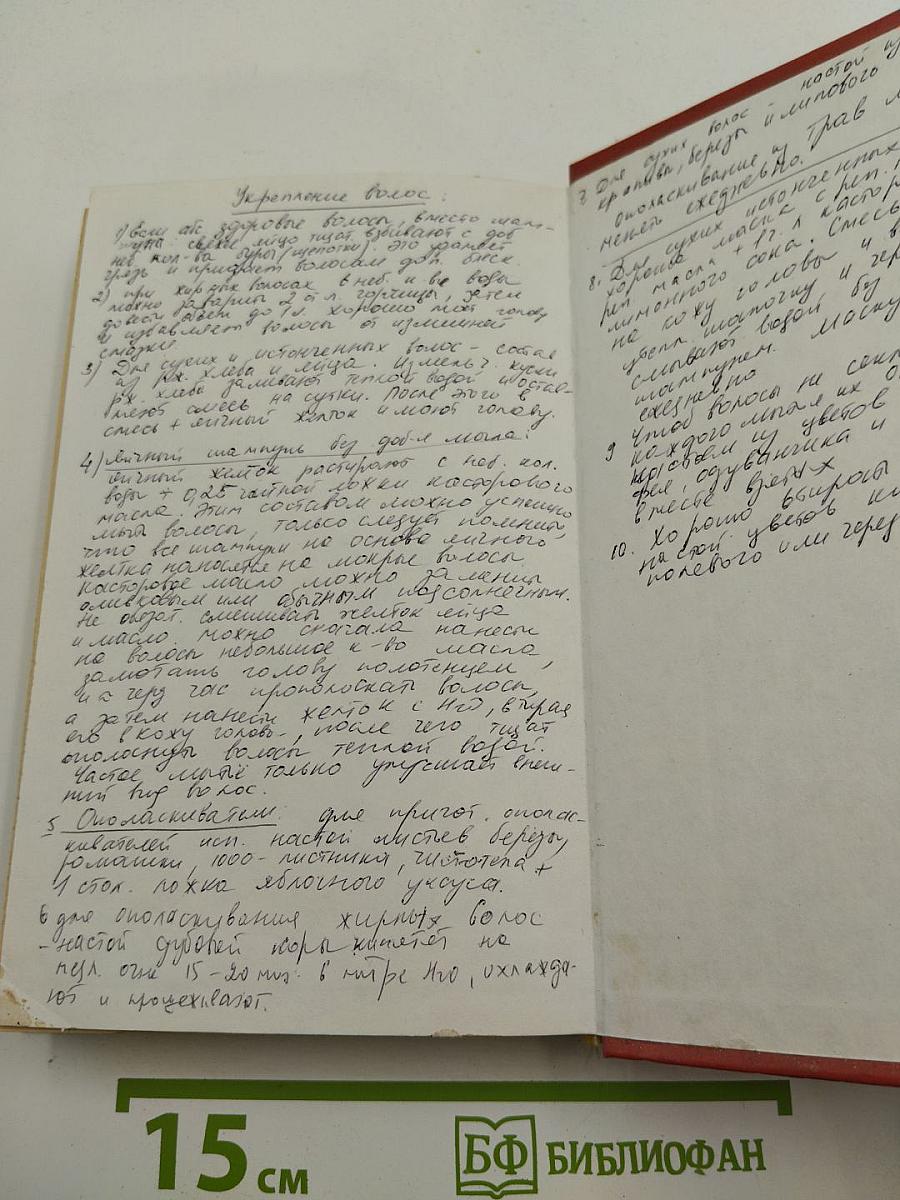 Укрепление волос:
1) Если абс здоровые волосы, вместо шам-
пуня: свежее яйцо тщат взбивают с доб
неб кол-ва буры (щепотки). Это удаляет
грязь и придает волосам доп. блеск.
2) при жирных волосах в неб. к-ве воды
можно заварить 2 ст л. горчицы, затем
довести объем до 1 л. хорошо моет голову
и избавляет волосы от излишней
смазки.
3) Для сухих и истонченных волос - состав
из рж. хлеба и яйца. Измельч. куски
рж. хлеба заливают теплой водой и остав-
ляют смесь на сутки. После этого в
смесь + яичный желток и моют голову.
4) Яичный шампунь без доб-я мыла:
яичный желток растирают с неб. кол.
воды + 0,25 чайной ложки касторового
масла. Этим составом можно успешно
мыть волосы, только следует помнить,
что все шампуни на основе яичного
желтка наносятся на мокрые волосы.
Касторовое масло можно заменить
оливковым или обычным подсолнечным.
Не обязат. смешивать желток яйца
и масло. можно сначала нанести
на волосы небольшое к-во масла
замотать голову полотенцем,
и через час прополоскать волосы,
а затем нанести желток с H2O, втирая
его в кожу головы, после чего тщат
ополоснуть волосы теплой водой.
Частое мытьё только улучшает внеш-
ний вид волос.
5 Ополаскиватели: для пригот. ополас-
кивателей исп. настой листьев березы,
ромашки, 1000-листника, чистотела +
1 стол. ложка яблочного уксуса.
6 для ополаскувания жирных волос
- настой дубовой коры кипятят на
медл. огне 15-20 мин. в литре H2O, охлажда-
ют и процеживают.
7 Для сухих волос - настой из
крапивы, березы и липового
ополаскивание из трав
менять ежедневно.
8. Для сухих истонченных
хороша маска с реп.
реп масла + 1 ч. л кастор
лимонного сока. Смесь
на кожу головы и в
тепл шапочку и чер
смывают водой без
шампунем. Маску
ежедневно
9 Чтоб волосы не секл
каждого мытья их о
настоем из цветов
фея, одуванчика и
вместе взятых
10. Хорошо втирать
настой цветов
полевого или чере
15 см
БФ БИБЛИОФАН